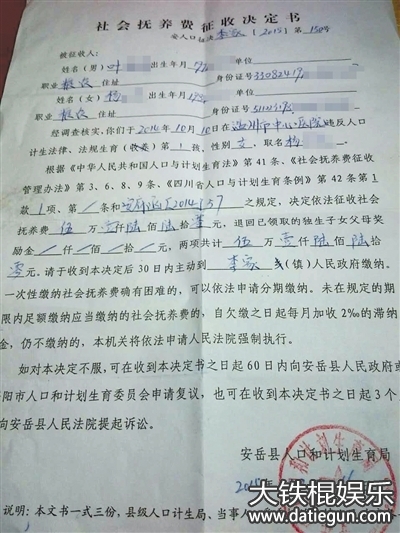 社会抚养费征收决定书
安人口征决 李家 [2015] 第 150号
被征收人:
姓名(男) 叶 出生年月 单位
职业 农 住址 身份证号 33082419
姓名(女) 杨 出生年月 单位
职业 农 住址 身份证号
经调查核实,你们于 2014 年 10 月 10 日在 市中心医院 违反人口
计生法律、法规生育(收养)第 1 孩,性别 女,取名 杨
根据《中华人民共和国人口与计划生育法》第 41 条、《社会抚养费征收
管理办法》第 3、6、8、9 条、《四川省人口与计划生育条例》第 42 条第 1 款
1 项、第 / 条和 [2014] 57 之规定,决定依法征收社会
抚养费 伍 万 壹 仟 陆 佰 陆 拾 零 元,退回已领取的独生子女父母奖
励金 / 仟 / 佰 / 拾 / 元,两项共计 伍 万 壹 仟 陆 佰 陆 拾
零 元。请于收到本决定后 30 日内主动到 李家 (镇)人民政府缴纳。
一次性缴纳社会抚养费确有困难的,可以依法申请分期缴纳。未在规定的期
限内足额缴纳应当缴纳的社会抚养费的,自欠缴之日起每月加收 2‰的滞纳
金,仍不缴纳的,本机关将依法申请人民法院强制执行。
如对本决定不服,可在收到本决定书之日起 60 日内向安岳县人民政府或
阳市人口和计划生育委员会申请复议,也可在收到本决定书之日起 3 个
向安岳县人民法院提起诉讼。
安岳县人口和计划生育局
说明:本文书一式三份,县级人口计生局、当事人
大铁棍娱乐
www.datiegun.com